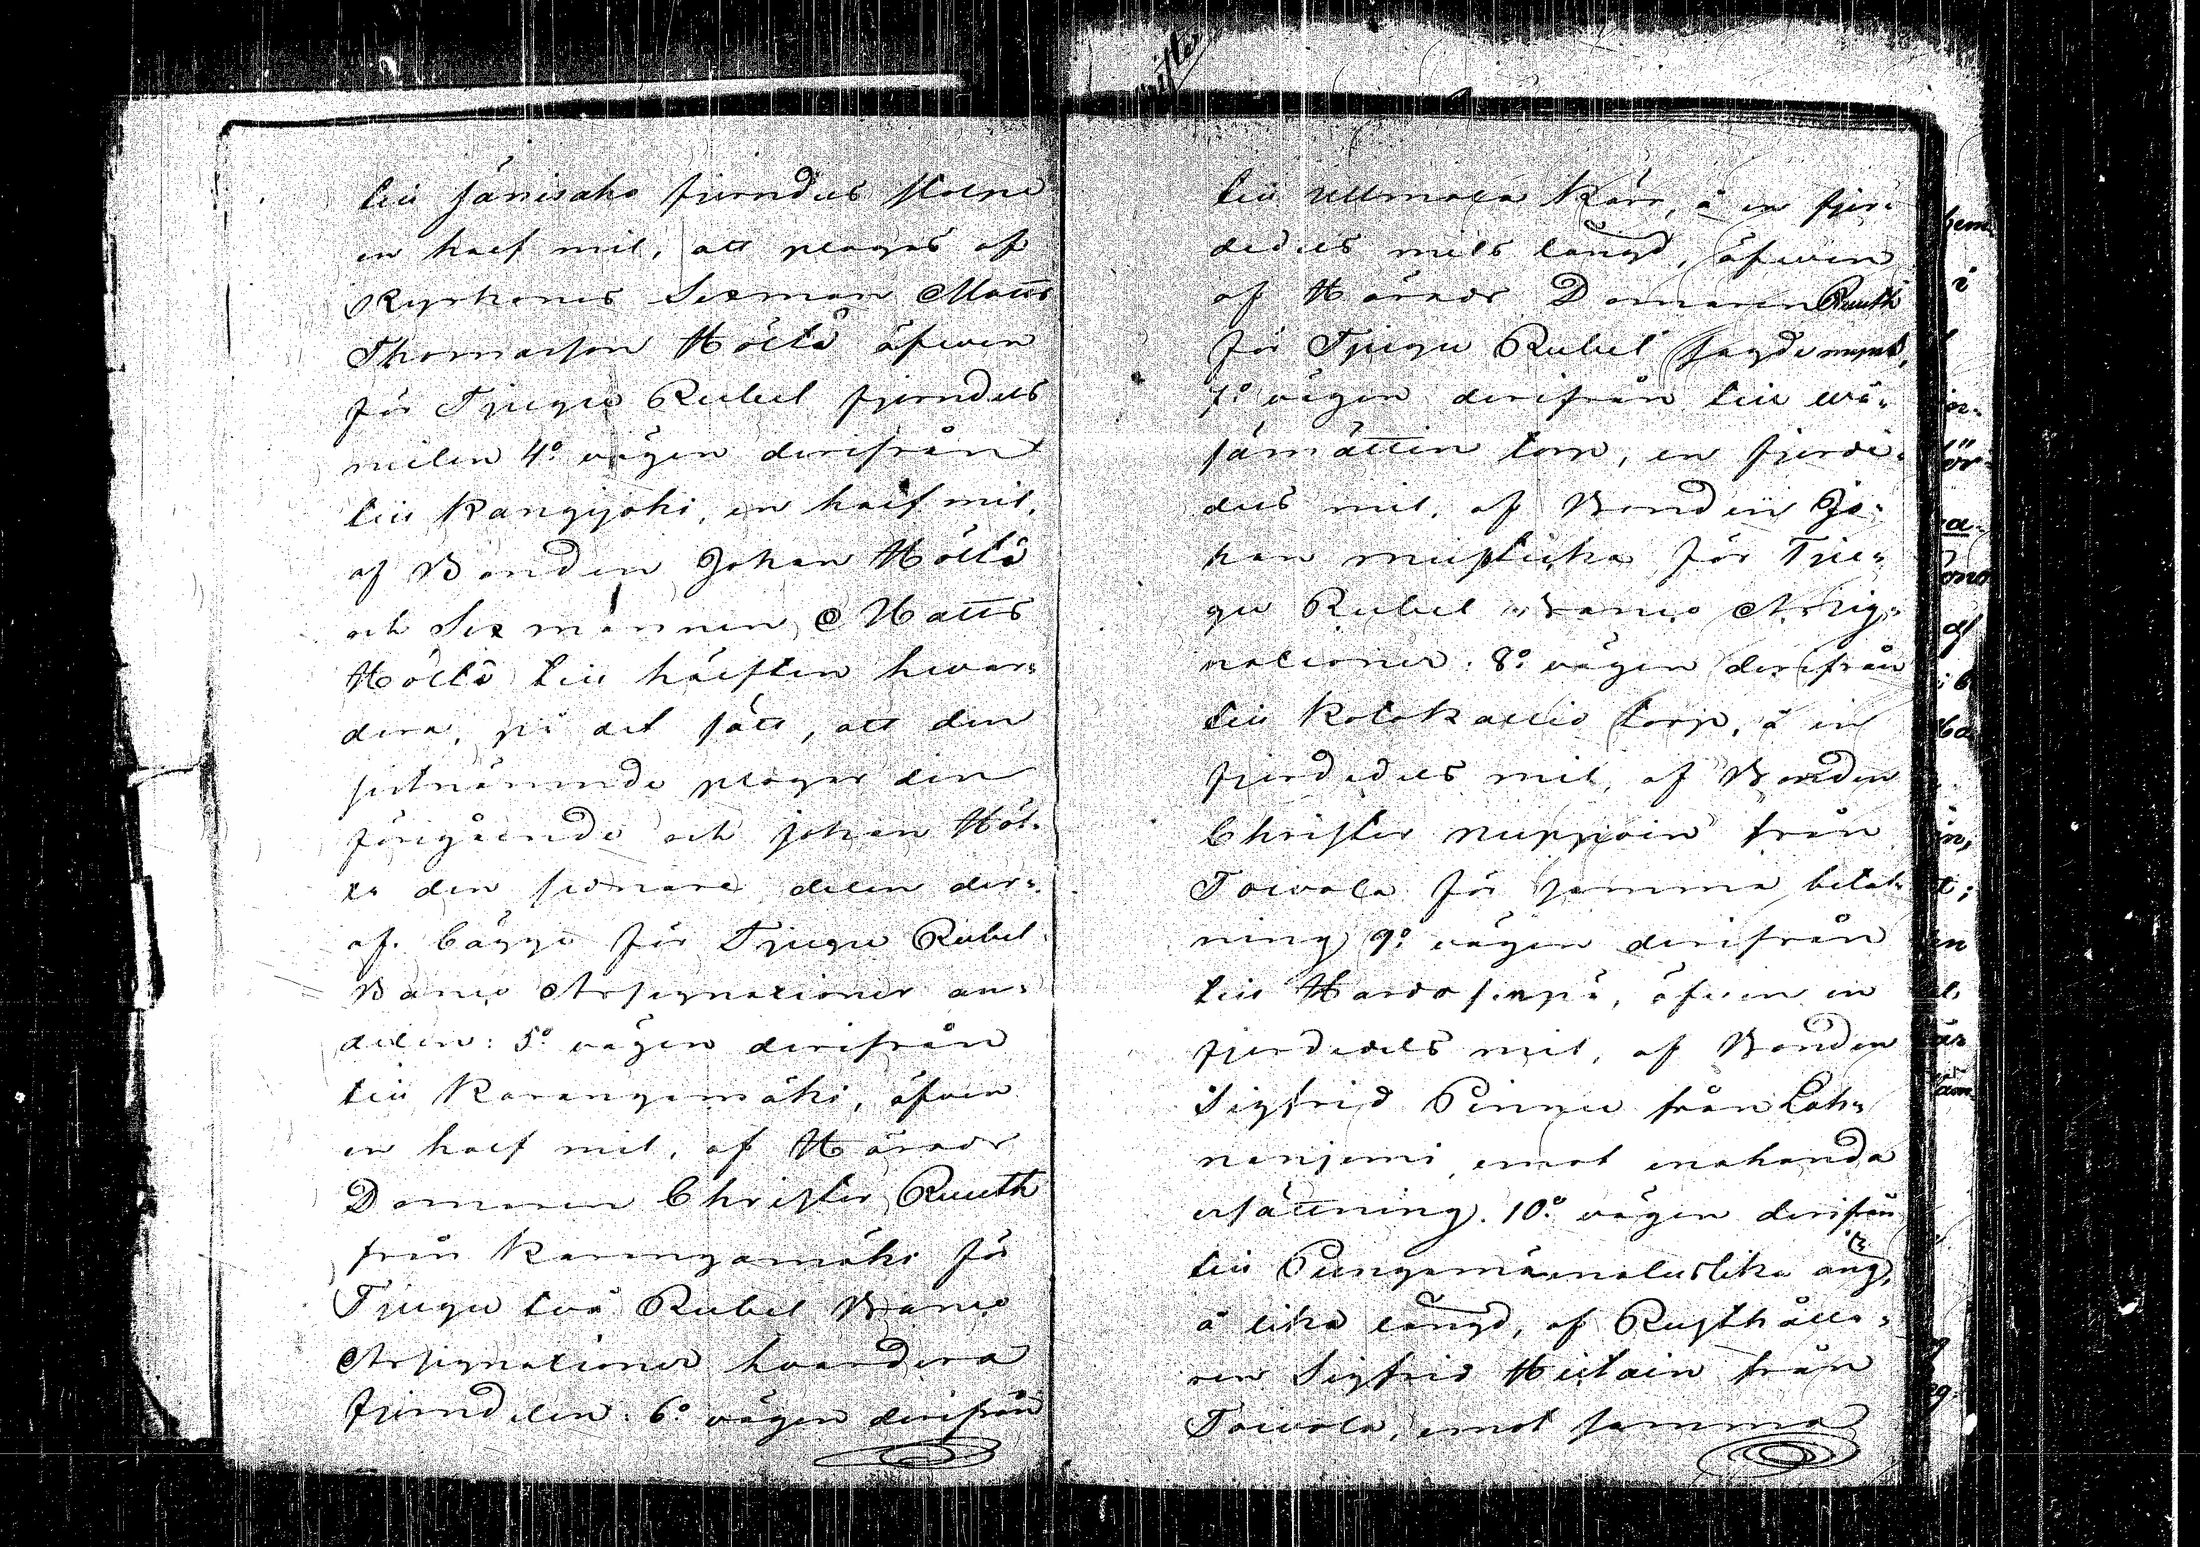 till Jänisaho fjerndels stolpe
en half mil, att plogas af
Kyrkones Sexman Matts
Thomasson Höltä äfwen
för Tjugu Rubel fjerndels
milen 4:o vägen derifrån
till Kangijoki, en half mil,
af Bonden Johan Höltä
och Sexmannen Matts
Höltä till hälften hwar=
dera, på det sätt, att den
sistnämnde plogar den
föregående och Johan Höl=
tä den sednare delen der=
af. bägge för Tjugu Rubel
Banco Assignationer an=
delen: 5:o vägen derifrån
till Karangamäki, äfven
en half mil, af Härads
Domaren Christer Ruuth
från Karangamäki för
Tjugu två Rubel Banco
Assignationer hvardera
fjerndelen: 6:o vägen derifrån
till Ullmala Kärr, à en fjer=
dedels mils längd, äfwen
af Härads Domaren Ruuth
för Tjugu Rubel sagde mynt,
7:o vägen derifrån till
torp, en fjerde=
dels mil, af Bonden Jo=
han för Tju=
gu Rubel Banco Assig=
nationer: 8:o vägen derifrån
till Kolokallio torp, à en
fjerdedels mil, af Bonden
Christer Nuppoin från
Toivola för samma betal=
ning 9:o vägen derifrån
till äfven en
fjerdedels mil, af Bonden
Sigfrid Pingu från Lah=
nanjemi emot enahanda
ersättning. 10:o vägen derifrån
till äng,
à lika längd, af Rusthålla=
ren Sigfrid från
Toivola, emot samma